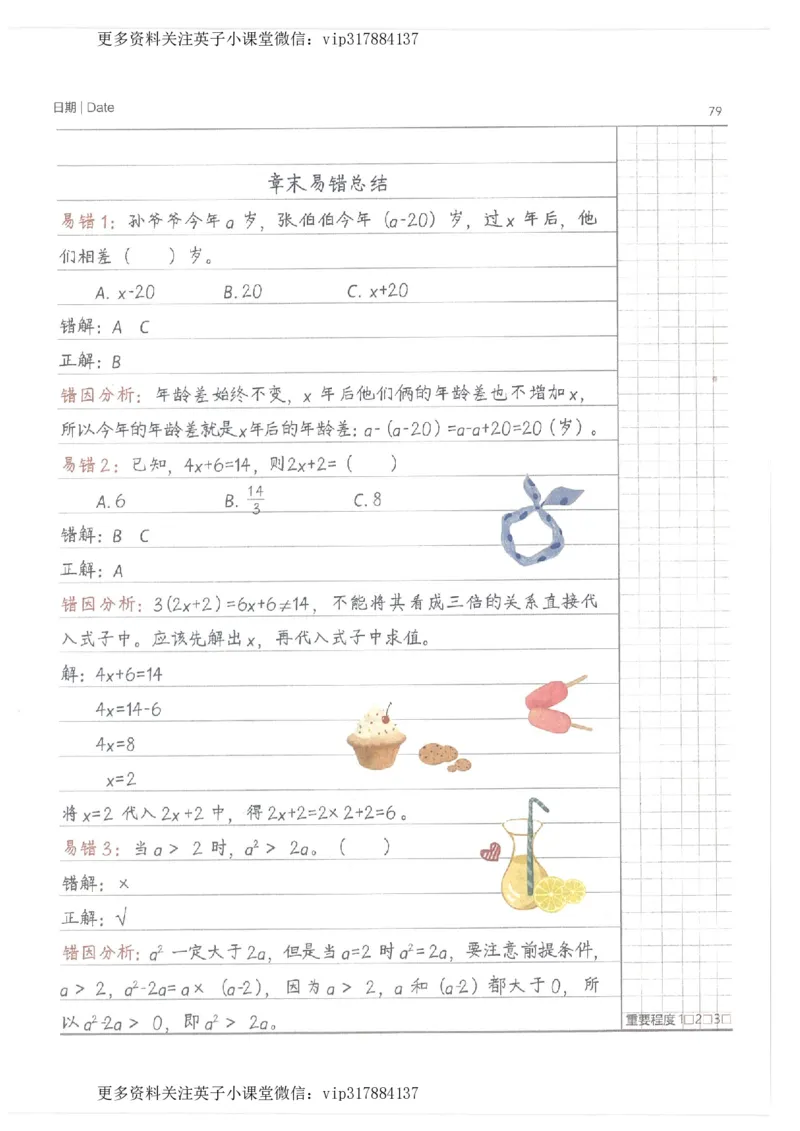 更多资料关注英子小课堂微信：vip317884137
日期 | Date
79
章末易错总结
易错1：孙爷爷今年a岁，张伯伯今年（a-20）岁，过x年后，他
们相差（　　）岁。
A. x-20　　B. 20　　C. x+20
错解：A　C
正解：B
错因分析：年龄差始终不变，x年后他们俩的年龄差也不增加x，
所以今年的年龄差就是x年后的年龄差：a-（a-20）=a-a+20=20（岁）。
易错2：已知，4x+6=14，则2x+2=（　　）
A. 6　　B. 14/3　　C. 8
错解：B　C
正解：A
错因分析：3(2x+2)=6x+6≠14，不能将其看成三倍的关系直接代
入式子中。应该先解出x，再代入式子中求值。
解：4x+6=14
4x=14-6
4x=8
x=2
将x=2代入2x+2中，得2x+2=2×2+2=6。
易错3：当a＞2时，a²＞2a。（　　）
错解：×
正解：√
错因分析：a²一定大于2a，但是当a=2时a²=2a，要注意前提条件，
a＞2，a²-2a=a×（a-2），因为a＞2，a和（a-2）都大于0，所
以a²-2a＞0，即a²＞2a。
重要程度 1□2□3□
更多资料关注英子小课堂微信：vip317884137